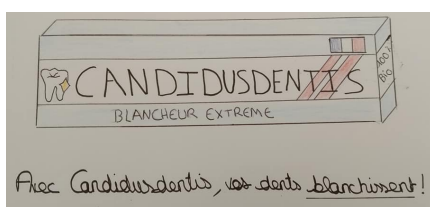 CANDIDUSDENTIS
BLANCHEUR EXTREME
100%
Bio
Avec Candidusdentis, vos dents blanchissent !